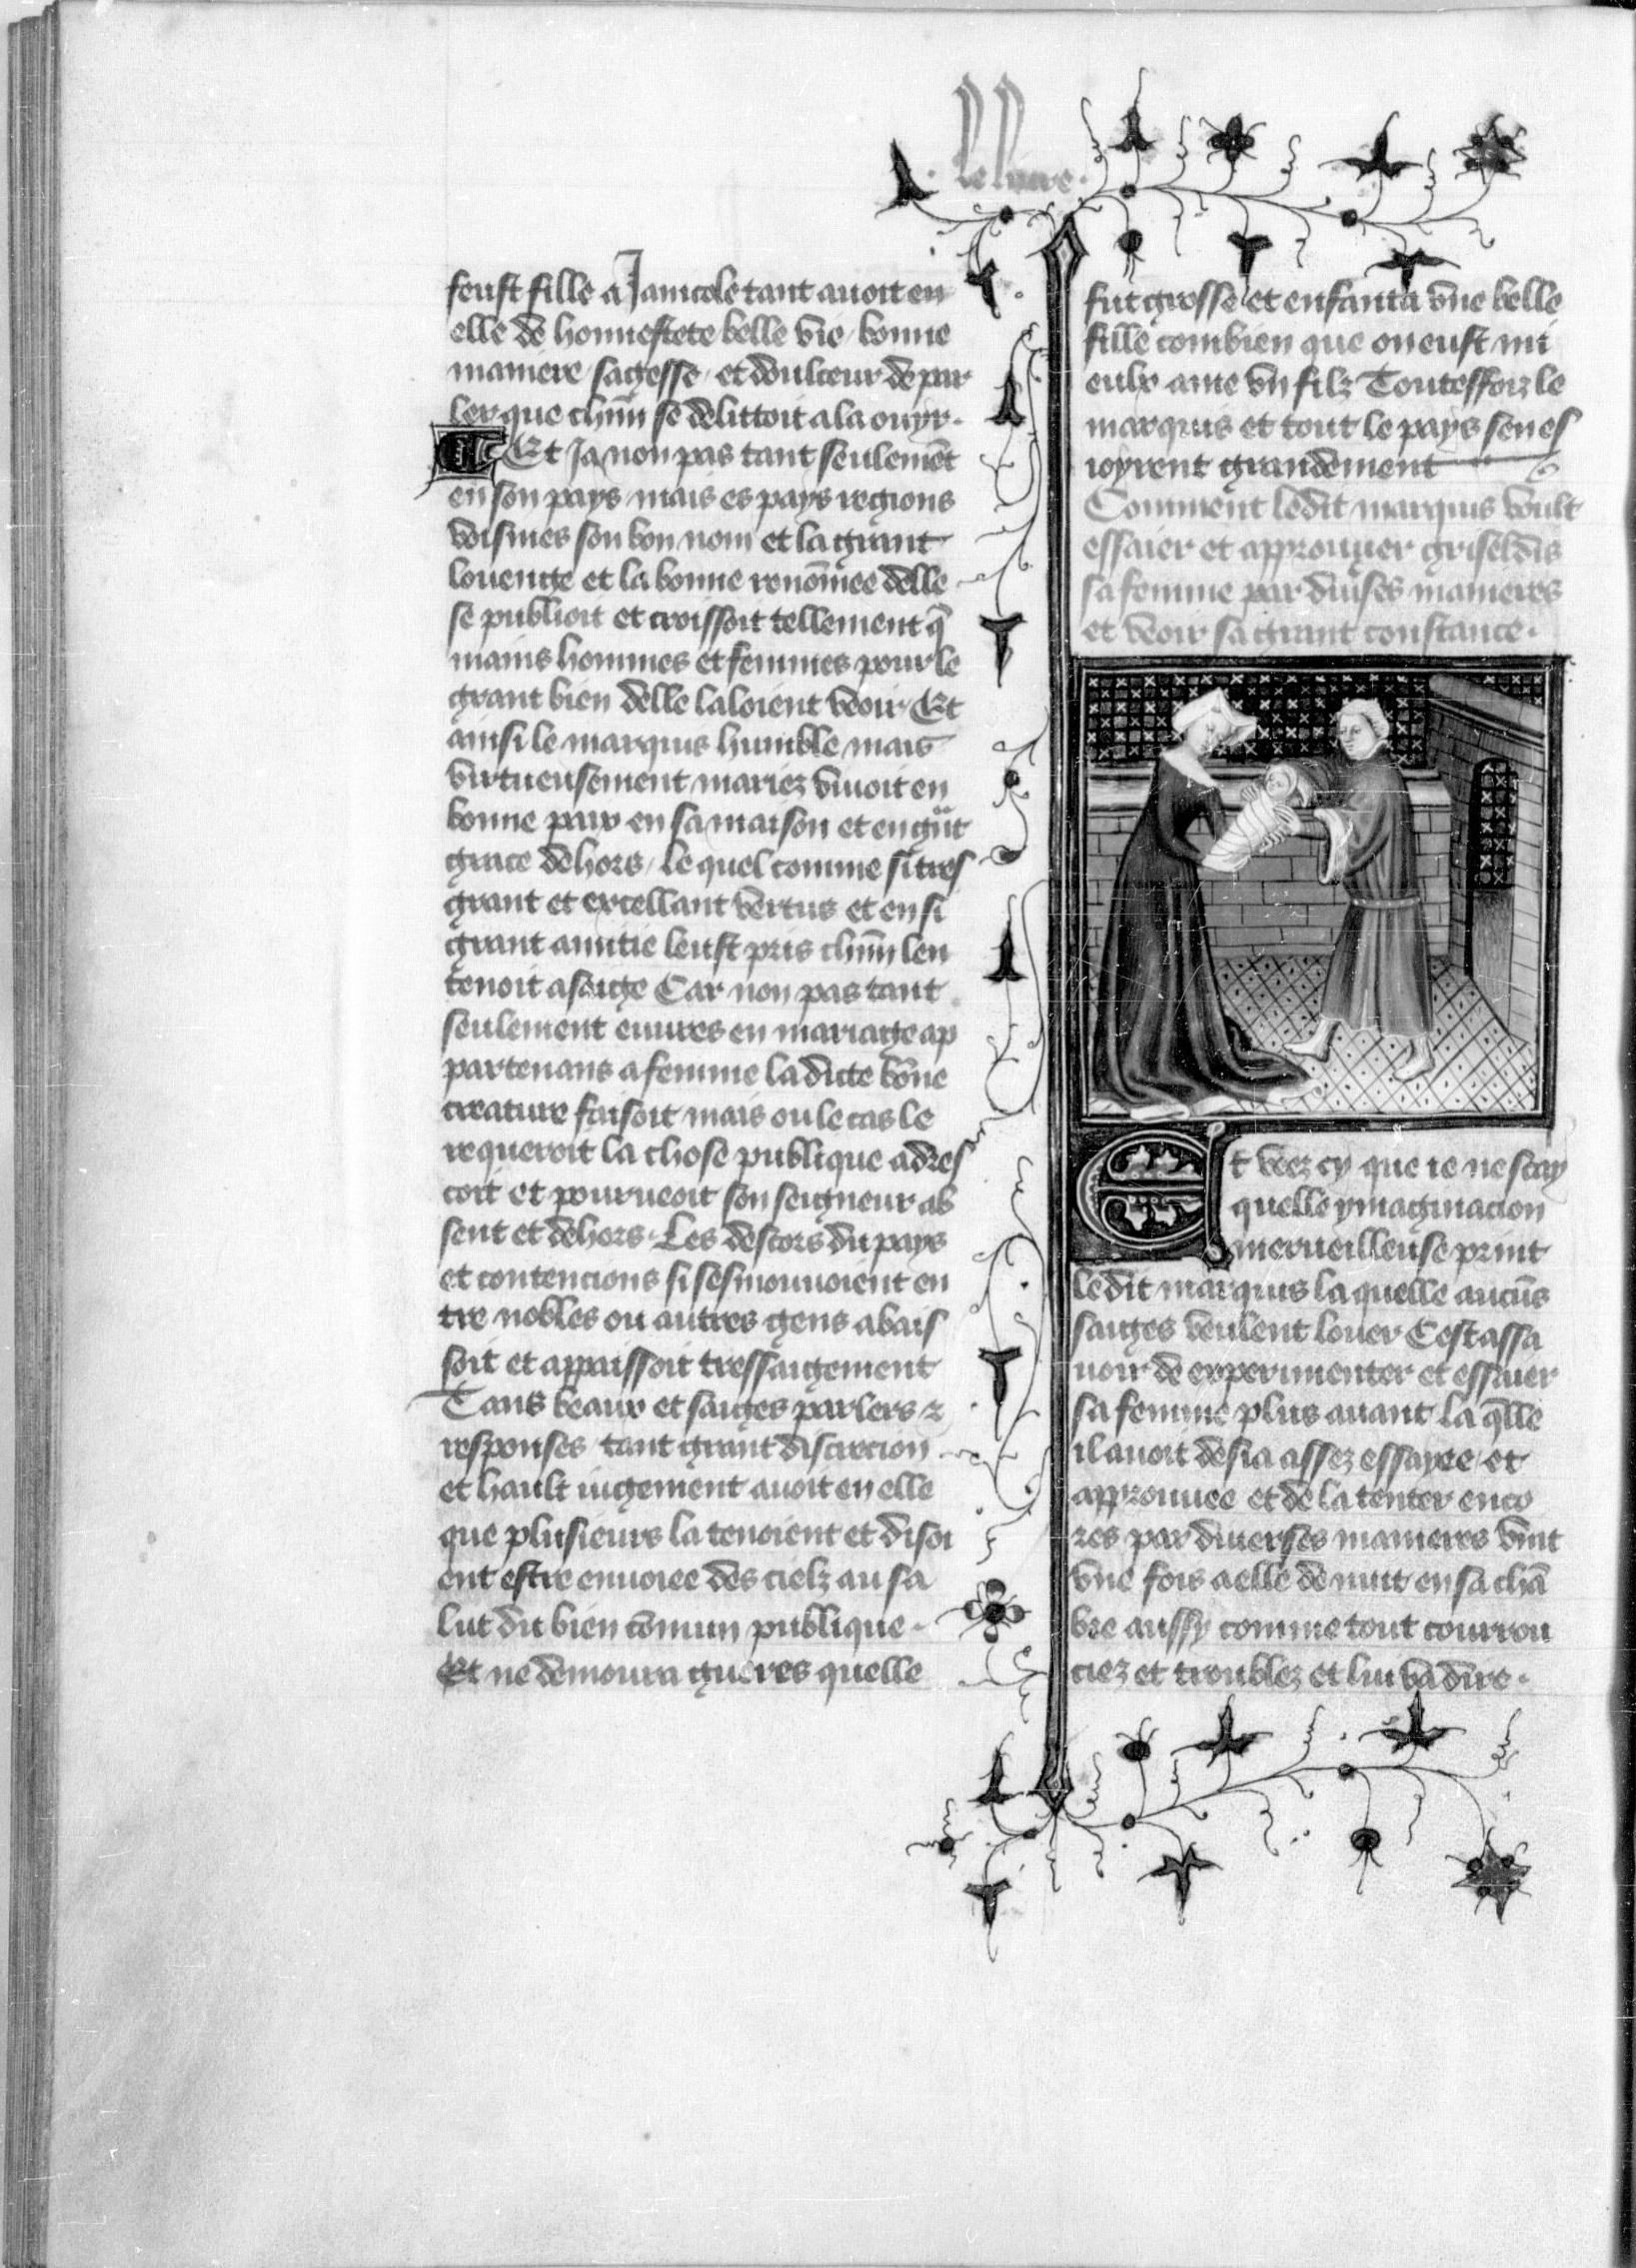 Le livre
feust fille a Janicole tant auoit en
elle de honnestete belle vie bonne
maniere sagesse et doulceur de par
ler que chūn se delittoit a la ouyr.
Et Ja non pas tant seulemēt
en son pays mais es pays regions
voisines son bon nom et la grant
louenge et la bonne renōmee delle
se publioit et croissoit tellement q̄
mains hommes et femmes pour le
grant bien delle laloient veoir Et
ainsi le marquis humble mais
virtueusement mariez viuoit en
bonne paix en sa maison et en gūt
grace dehors le quel comme si tres
grant et excellant vertus et en si
grant amitie leust pris chūn len
tenoit a saige Car non pas tant
seulement euures en mariage ap
partenans a femme la dicte bōne
creature faisoit mais ou le cas le
requeroit la chose publique adres
coit et pourueoit son seigneur ab
sent et dehors. Les descors du pays
et contencions si sesmouuoient en
tre nobles ou autres gens abais
soit et appaissoit tressaigement
Tans beaux et saiges parlers ⁊
responses tant grant discrecion
et hault iugement auoit en elle
que plusieurs la tenoient et disoi
ent estre enuoiee des cielz au sa
lut du bien cōmun publique.
Et ne demoura gueres quelle
fut grosse et enfanta vne belle
fille combien que on eust mi
eulx ame vn filz Toutesfoiz le
marquis et tout le pays sen es
ioyrent grandement
Comment ledit marquis voult
essaier et approuuer griseldis
sa femme par diuses manieres
et veoir sa grant constance.
Et veez cy que ie ne scay
quelle ymaginacion
merueilleuse print
ledit marquis la quelle aucūs
saiges veulent louer Cest assa
uoir de experimenter et essaier
sa femme plus auant la q̄lle
il auoit desia assez essayee et
approuuee et de la tenter enco
res par diuerses manieres vint
vne fois a elle de nuit en sa chā
bre aussy comme tout courrou
ciez et troublez et lui va dire.